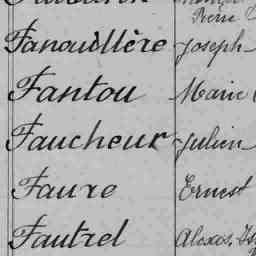 Pierre
Fanouillère Joseph
Fantou Marie
Faucheur Julien
Faure Ernest
Fautrel Alexis